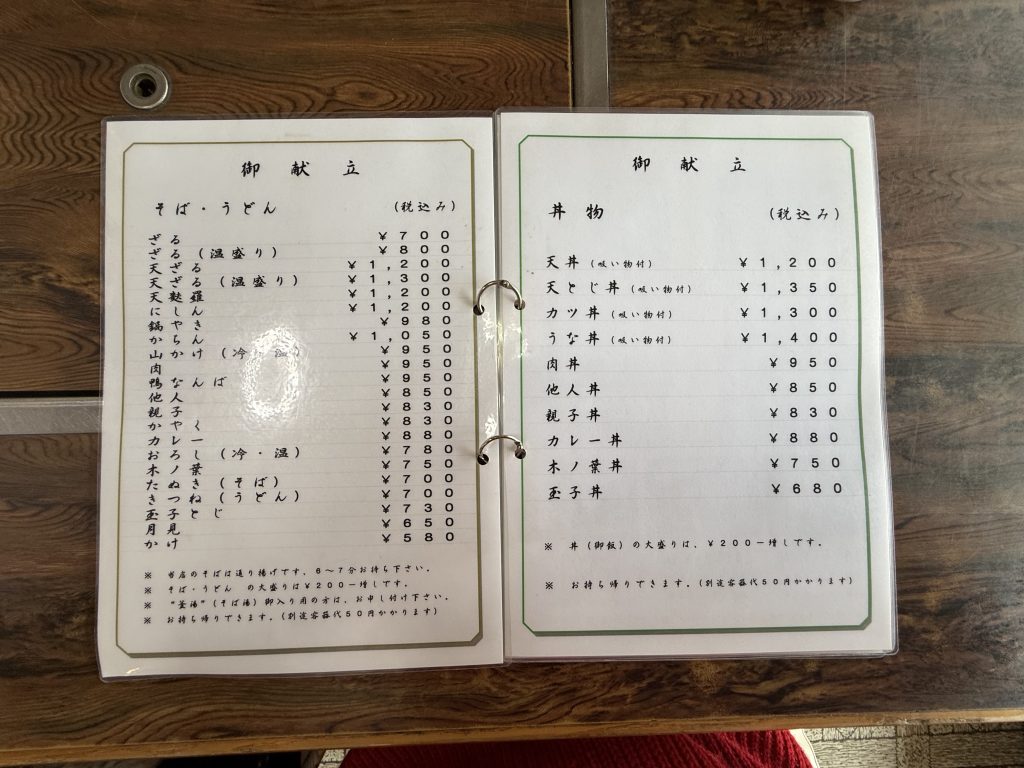 御献立
そば・うどん (税込み)
ざる ¥700
ざる (温盛り) ¥800
天ざる ¥1,200
天ざる (温盛り) ¥1,300
天麩羅 ¥1,200
にしん ¥1,200
鍋やき ¥980
からん ¥1,050
山かけ (冷・温) ¥950
肉 ¥950
鴨なんば ¥950
他人 ¥850
親子 ¥830
かやく ¥830
カレー ¥880
おろし (冷・温) ¥780
木ノ葉 ¥750
たぬき (そば) ¥700
きつね (うどん) ¥700
玉子とじ ¥730
月見 ¥650
かけ ¥580
※ 当店のそばは通り揚げです。6～7分お持ち下さい。
※ そば・うどん の大盛りは¥200－増しです。
※ “釜湯”(そば湯)御入り用の方は、お申し付け下さい。
※ お持ち帰りできます。(別途容器代50円かかります)
御献立
丼物 (税込み)
天丼 (吸い物付) ¥1,200
天とじ丼 (吸い物付) ¥1,350
カツ丼 (吸い物付) ¥1,300
うな丼 (吸い物付) ¥1,400
肉丼 ¥950
他人丼 ¥850
親子丼 ¥830
カレー丼 ¥880
木ノ葉丼 ¥750
玉子丼 ¥680
※ 丼(御飯)の大盛りは、¥200－増しです。
※ お持ち帰りできます。(別途容器代50円かかります)